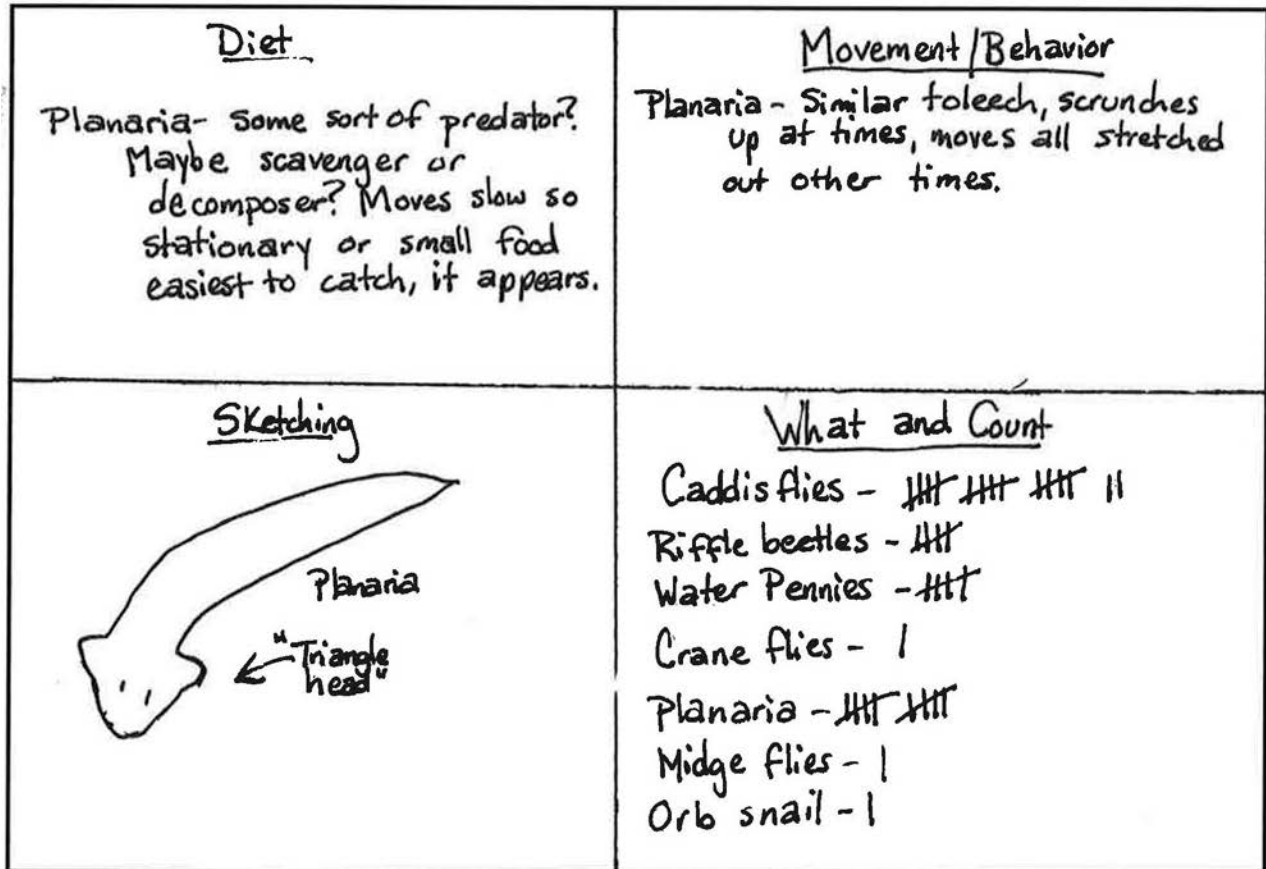 Diet
Planaria- Some sort of predator?
Maybe scavenger or
decomposer? Moves slow so
stationary or small food
easiest to catch, it appears.
Movement/Behavior
Planaria - Similar toleech, scrunches
up at times, moves all stretched
out other times.
Sketching
Planaria
"Triangle
head"
What and Count
Caddis flies - 卌 卌 卌 ||
Riffle beetles - 卌
Water Pennies - 卌
Crane flies - |
Planaria - 卌 卌
Midge flies - |
Orb snail - |